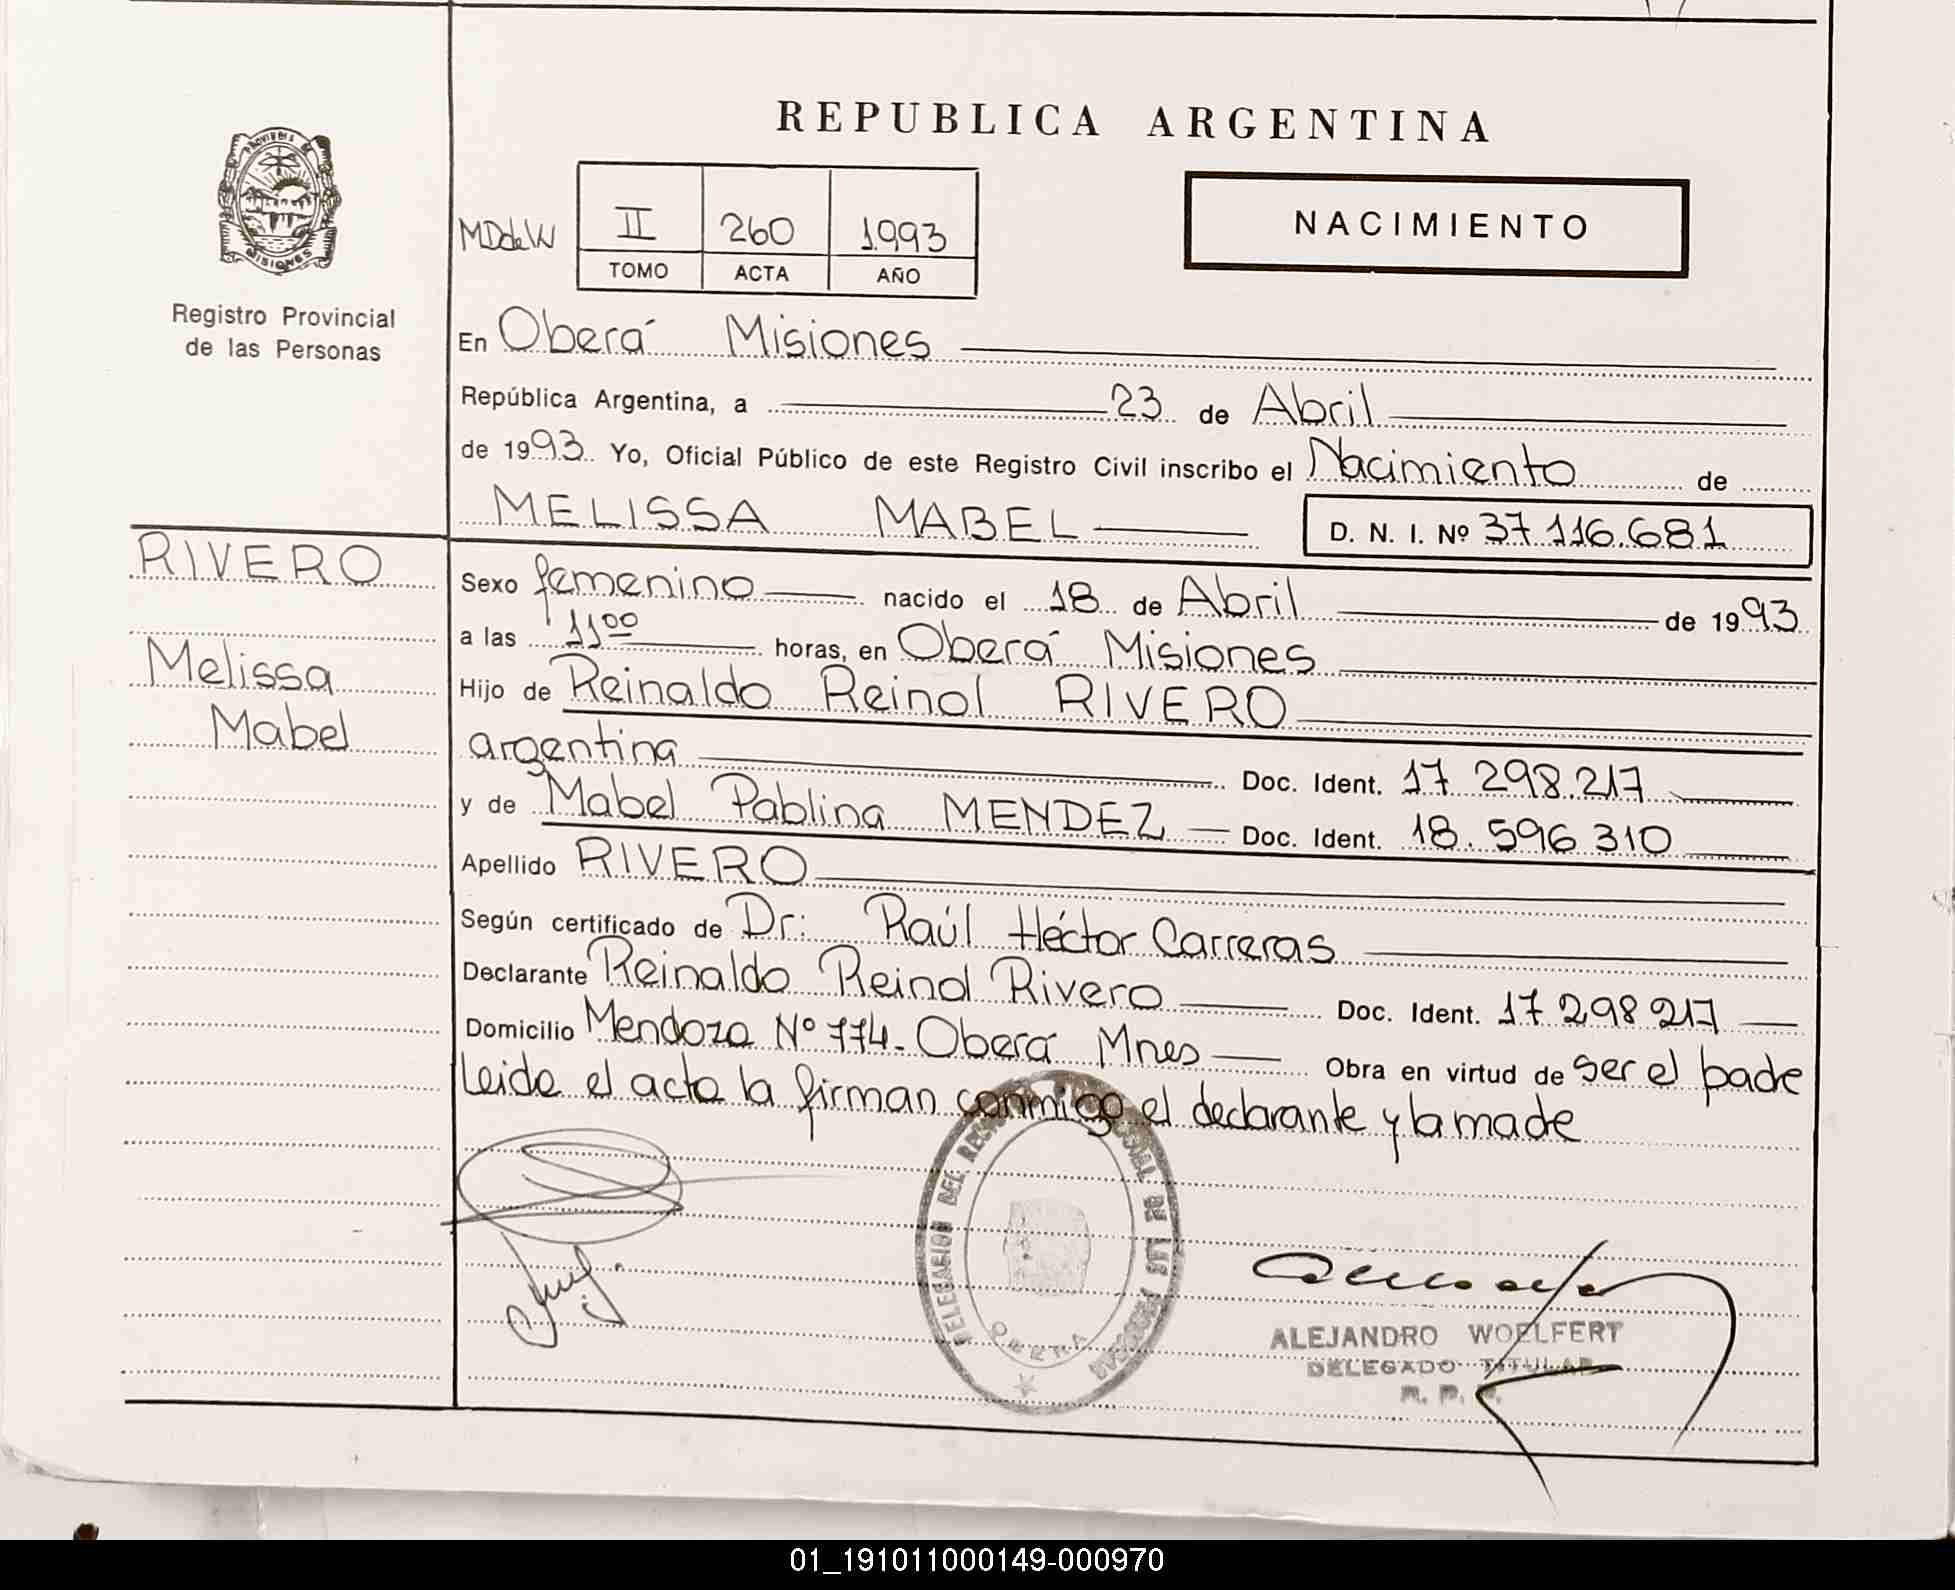 REPUBLICA ARGENTINA
PROVINCIA DE
MISIONES
Registro Provincial
de las Personas
MDdeW
II 260 1993
TOMO ACTA AÑO
NACIMIENTO
En Oberá Misiones
República Argentina, a 23 de Abril
de 1993 Yo, Oficial Público de este Registro Civil inscribo el Nacimiento de
MELISSA MABEL
D. N. I. Nº 37.116.681
RIVERO
Melissa
Mabel
Sexo femenino nacido el 18 de Abril de 1993
a las 11 00 horas, en Oberá Misiones
Hijo de Reinaldo Reinol RIVERO
argentina Doc. Ident. 17 298.217
y de Mabel Pablina MENDEZ Doc. Ident. 18.596 310
Apellido RIVERO
Según certificado de Dr: Raúl Héctor Carreras
Declarante Reinaldo Reinol Rivero Doc. Ident. 17 298 217
Domicilio Mendoza Nº 774- Oberá Mnes Obra en virtud de ser el padre
leida el acta la firman conmigo el declarante y la madre
DELEGACION DEL DE LAS PERSONAS
OBERA
ALEJANDRO WOELFERT
DELEGADO TITULAR
R. P. P.
01_191011000149-000970